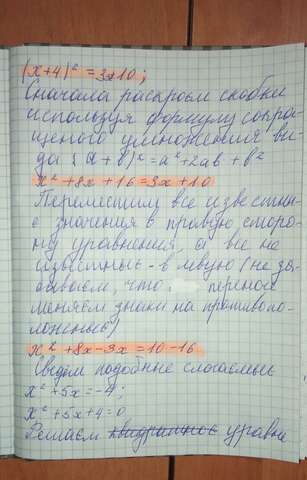 (x+4)² = 3x+10;
Сначала раскроем скобки
используя формулу сокра
щеного умножения ви
да (a+b)² = a²+2ab+b²
x²+8x+16=3x+10
Переместим все известны
е значения в правую сторо
ну уравнения, а все не
известные - в левую (не за
бываем, что перенос
меняем знаки на противопо
ложные)
x²+8x-3x=10-16
Сведём подобные слогаемые
x²+5x=-4;
x²+5x+4=0
Решаем квадратное уравне